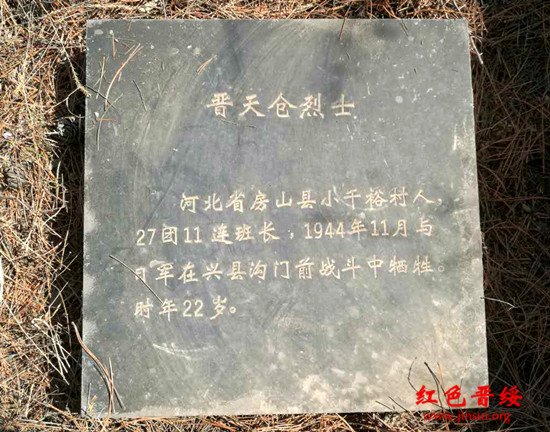 晋天仓烈士
河北省房山县小干裕村人，
27团11连班长，1944年11月与
日军在兴县沟门前战斗中牺牲。
时年22岁。
红色晋绥
www.jinsui.org